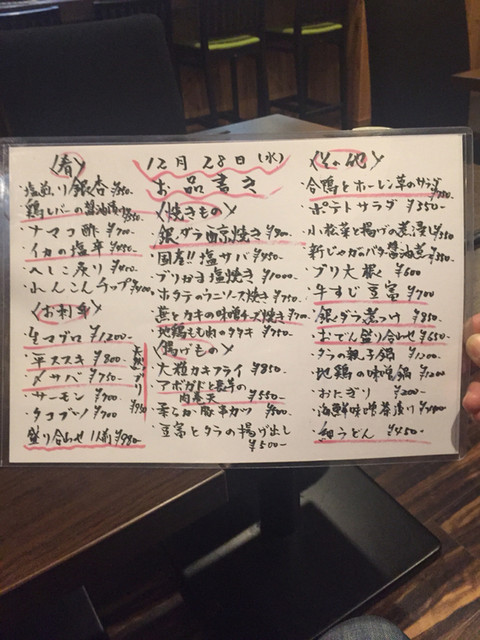 12月28日(水)
お品書き
<肴>
・塩煎り銀杏 ¥350-
・鶏レバーの醤油漬け
・ナマコ酢 ¥700-
・イカの塩辛
・へしこ炙り
・れんこんチップ ¥400
<お刺身>
・生マグロ ¥1,200-
・平スズキ ¥800-
・〆サバ ¥750-
・サーモン ¥700
・タコブツ ¥700
盛り合わせ 1人前 ¥980-
<焼きもの>
・銀ダラ西京焼き
・国産!!塩サバ ¥950
・ブリかま塩焼き ¥1000-
・ホタテのウニソース焼き ¥750-
・蕪とカキの味噌チーズ焼き ¥700-
・地鶏もも肉のタタキ ¥750-
<揚げもの>
・大粒カキフライ ¥850-
・アボガドと長芋の
肉巻天 ¥550-
・柔らか豚串カツ ¥500
・豆富とタラの揚げ出し
¥500-
<その他>
・合鴨とホーレン草のサラダ
・ポテトサラダ ¥350-
・小松菜と揚げの煮浸し
・新じゃがのバタ醤油煮
・ブリ大根 ¥600
・牛すじ豆富 ¥700
・銀ダラ煮つけ ¥850
・おでん盛り合わせ ¥650
・タラの親子鍋 ¥1200
・地鶏の味噌鍋 ¥1200
・おにぎり ¥200-
・海鮮味噌茶漬け
・細うどん ¥450-